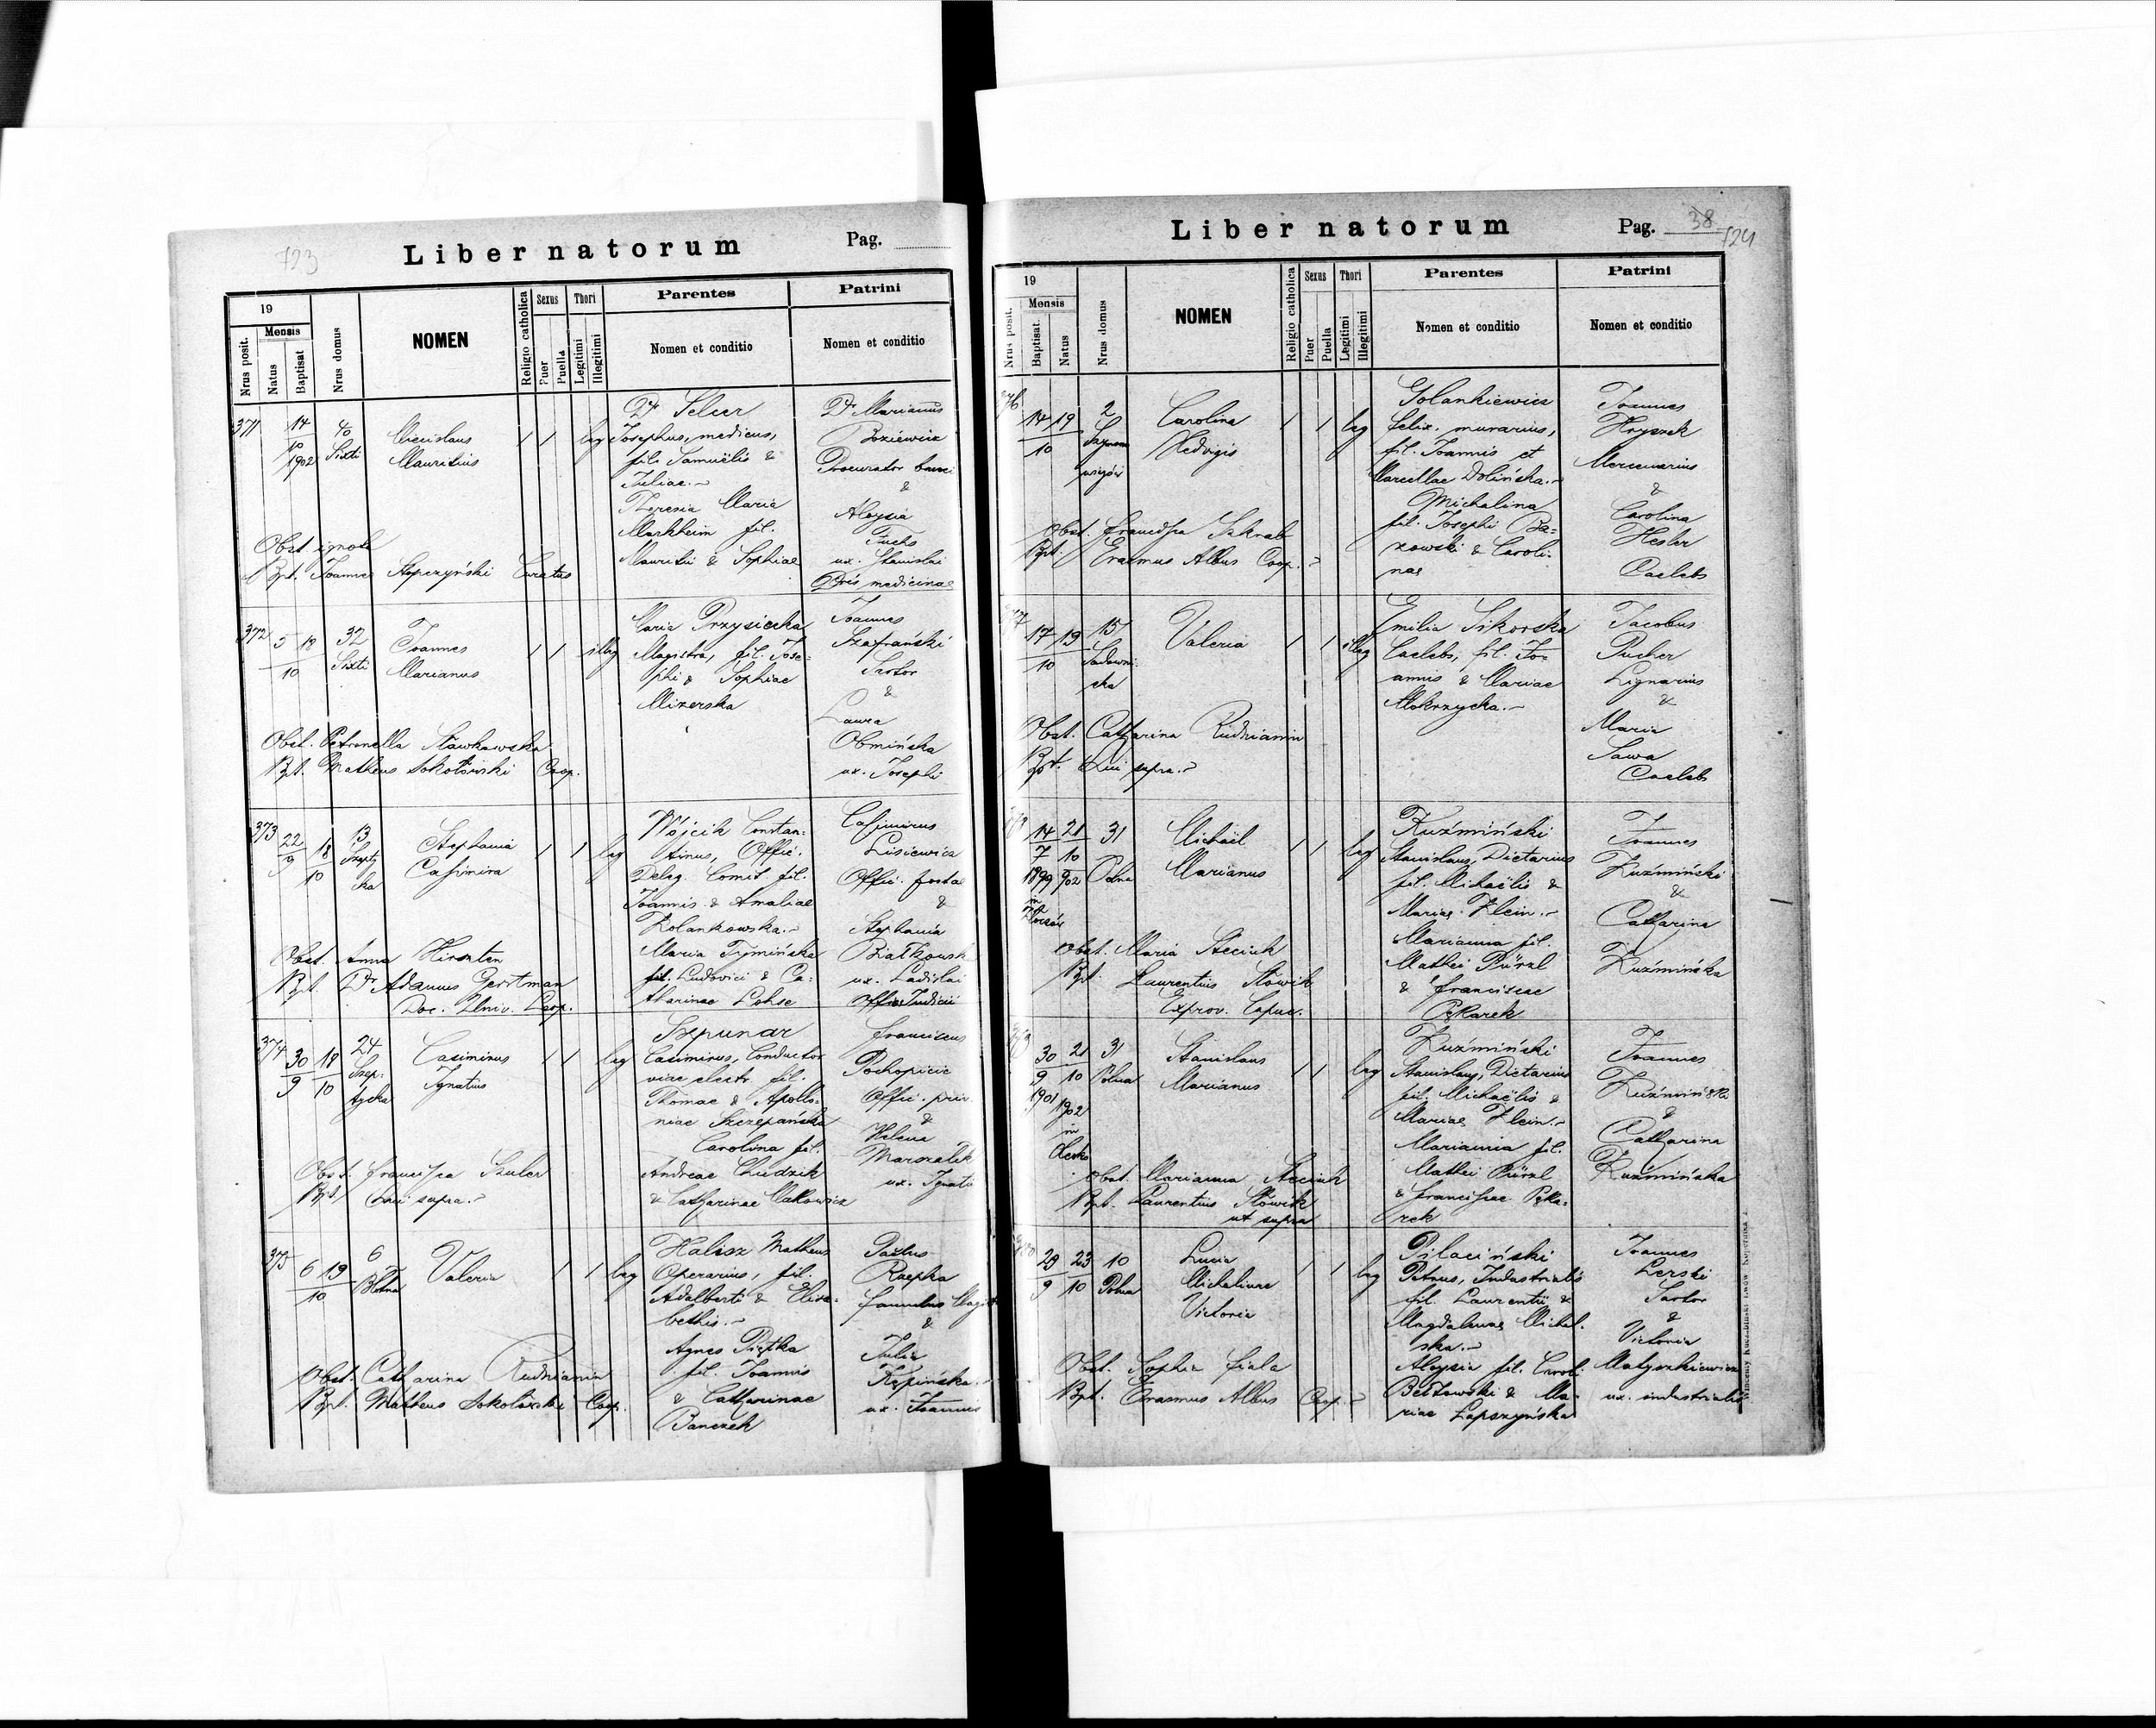 723
Liber natorum
Pag.
19
Mensis
Nrus posit.
Natus
Baptisat
Nrus domus
NOMEN
Religio catholica
Sexus
Puer
Puella
Thori
Legitimi
Illegitimi
Parentes
Nomen et conditio
Patrini
Nomen et conditio
371
14
10
1902
40
Sixti
Miecislaus
Mauritius
1 1 leg
Dr Selcer
Josephus, medicus,
fil. Samuëlis &
Juliae.
Theresia Maria
Markheim fil.
Mauritii & Sophiae
Dr Marianus
Boziewicz
Procurator
&
Aloysia
Fuchs
ux. Stanislai
Dris medicinae
Obst. ignota
Bpt. Joannes Stopczyński Curatus
372
5 18
10
32
Sixti
Joannes
Marianus
1 1 illeg
Maria Przysiecka
Magistra, fil. Jose-
phi & Sophiae
Mizerska
Joannes
Szafrański
Sartor
&
Laura
Obmińska
ux. Josephi
Obst. Petronella Sławkowska
Bpt. Matheus Sokołowski Coop.
373
22
9
18
10
13
Szepty
cka
Stephania
Casimira
1 1 leg
Wójcik Constan-
tinus, Offic.
Deleg. Comit fil.
Joannis & Amaliae
Kolankowska.
Maria Tymińska
fil. Ludovici & Ca-
tharinae Lohse
Casimirus
Lisiewicz
Offic. posta
&
Stephania
Białkowsk
ux. Ladislai
Offic. Judicii
Obst. Anna Hirnten
Bpt. Dr Adamus Gerstman
Doc. Univ. Coop.
374
30
9
18
10
24
Szep-
tycka
Casimirus
Ignatius
1 1 leg
Szpunar
Casimirus, Conductor
viae electr. fil.
Thomae & Apollo-
niae Szczepańska
Carolina fil.
Andreae Chudzik
& Catharinae Makowicz
Franciscus
Pochopicie
Offic. priv.
&
Helena
Marszałek
ux. Ignatii
Obst. Francisca Szuler
Bpt. Qui supra.
375
6 19
10
6
Błotna
Valeria
1 1 leg
Halisz Matheus
Operarius, fil.
Adalberti & Elisa-
bethis.
Agnes Piętka
fil. Joannis
& Catharinae
Banczek
Paulus
Rzepka
famulus Magist
&
Julia
Kępińska
ux. Joannis
Obst. Catharina Rudnianin
Bpt. Matheus Sokołowski Coop.
Liber natorum
Pag. 38
724
19
Mensis
Nrus posit.
Baptisat.
Natus
Nrus domus
NOMEN
Religio catholica
Sexus
Puer
Puella
Thori
Legitimi
Illegitimi
Parentes
Nomen et conditio
Patrini
Nomen et conditio
376
14 19
10
2
Carolina
Hedvigis
1 1 leg
Golankiewicz
Felix. murarius,
fil. Joannis et
Marcellae Dolińska.
Michalina
fil. Josephi Ba-
zowski & Caroli-
nae
Joannes
Hryszek
Mercenarius
&
Carolina
Hesler
Caelebs
Obst. Francisca Szkrab
Bpt. Erasmus Albus Coop.
17 19
10
15
Sadowni-
cka
Valeria
1 1 illeg
Emilia Sikorska
Caelebs, fil. Jo-
annis & Mariae
Mokrzycka.
Jacobus
Pucher
Lignarius
&
Maria
Sawa
Caelebs
Obst. Catharina Rudnianin
Bpt. Qui supra.
14 21
7 10
1899 902
31
Polna
Michaël
Marianus
1 1 leg
Kuźmiński
Stanislaus, Dietarius
fil. Michaëlis &
Mariae Klein.
Marianna fil.
Mathei Bürzl
& Franciscae
Pękarek
Joannes
Kuźmiński
&
Catharina
Kuźmińska
Obst. Maria Steciuk
Bpt. Laurentius Słowik
Exprov. Capuc.
30 21
9 10
1901 1902
31
Polna
Stanislaus
Marianus
1 1 leg
Kuźmiński
Stanislaus, Dietarius
fil. Michaëlis &
Mariae Klein.
Marianna fil.
Mathei Bürzl
& Franciscae Pęka-
rek
Joannes
Kuźmiński
&
Catharina
Kuźmińska
Obst. Marianna Steciuk
Bpt. Laurentius Słowik
ut supra
29 23
9 10
10
Polna
Lucia
Michalina
Victoria
1 1 leg
Pilaciński
Petrus, Industrialis
fil. Laurentii &
Magdalenae Michal-
ska.
Aloysia fil. Carol.
Bełtowski & Ma-
riae Łapszyńska
Joannes
Lerski
Sartor
&
Victoria
Matyszkiewicz
ux. industrialis
Obst. Sophia Fiala
Bpt. Erasmus Albus Coop.